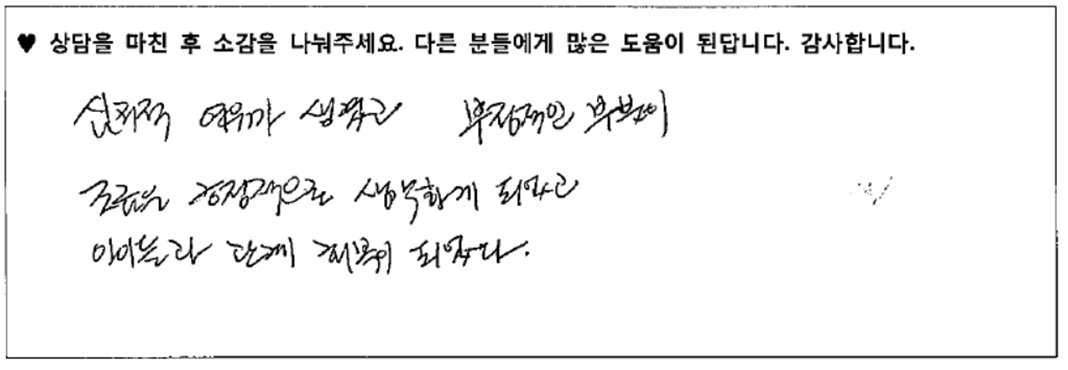 ♥ 상담을 마친 후 소감을 나눠주세요. 다른 분들에게 많은 도움이 된답니다. 감사합니다.
심리적 여유가 생겼고 부정적인 부분이
조금은 긍정적으로 생각하게 되었고
아이들과 관계 회복이 되었다.